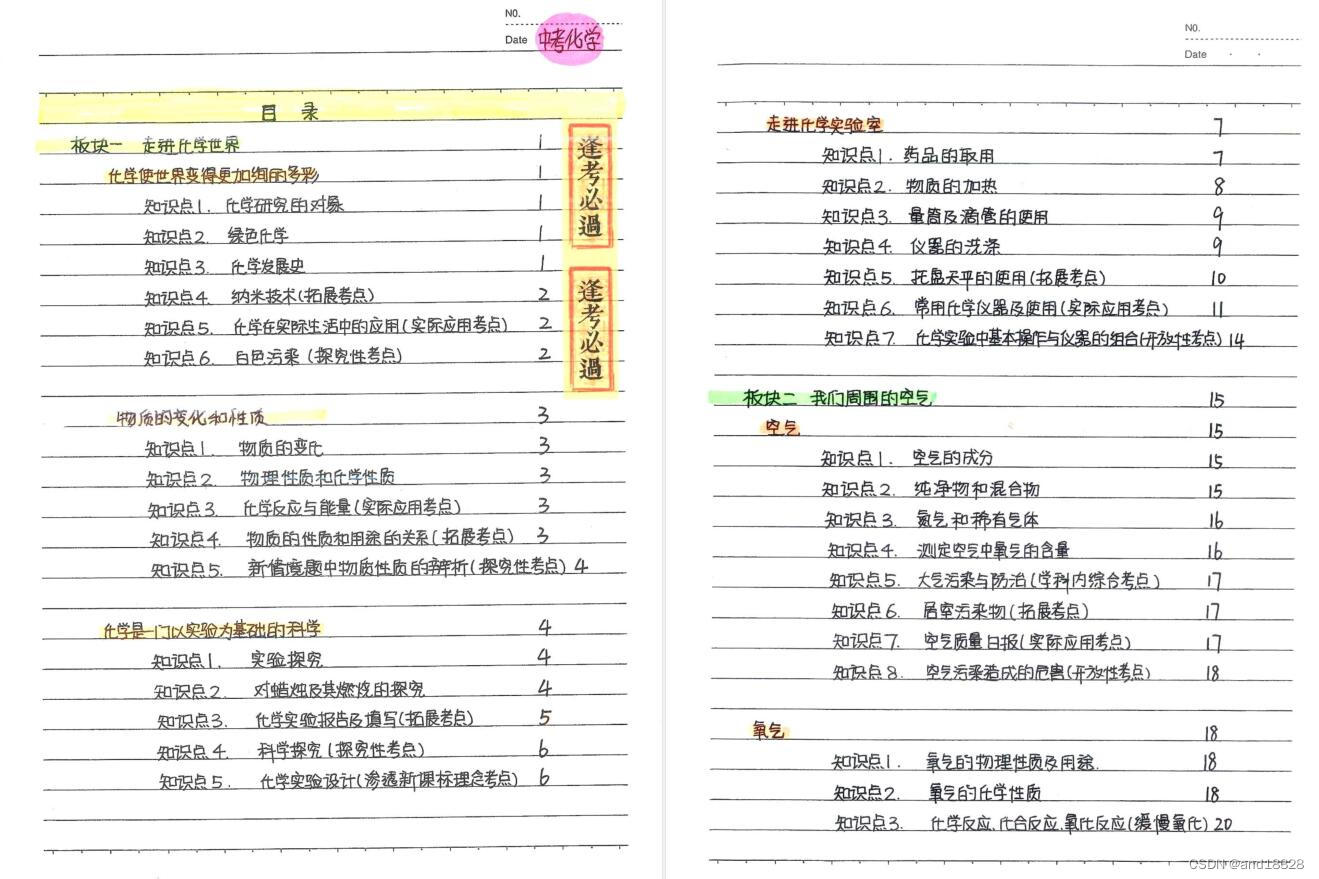 NO.
Date 中考化学
目 录
板块一 走进化学世界 1
化学使世界变得更加绚丽多彩 1
知识点1. 化学研究的对象 1
知识点2. 绿色化学 1
知识点3. 化学发展史 1
知识点4. 纳米技术(拓展考点) 2
知识点5. 化学在实际生活中的应用(实际应用考点) 2
知识点6. 白色污染(探究性考点) 2
逢考必過
逢考必過
物质的变化和性质 3
知识点1. 物质的变化 3
知识点2. 物理性质和化学性质 3
知识点3. 化学反应与能量(实际应用考点) 3
知识点4. 物质的性质和用途的关系(拓展考点) 3
知识点5. 新情境题中物质性质的辨析(探究性考点) 4
化学是一门以实验为基础的科学 4
知识点1. 实验探究 4
知识点2. 对蜡烛及其燃烧的探究 4
知识点3. 化学实验报告及填写(拓展考点) 5
知识点4. 科学探究(探究性考点) 6
知识点5. 化学实验设计(渗透新课标理念考点) 6
NO.
Date . .
走进化学实验室 7
知识点1. 药品的取用 7
知识点2. 物质的加热 8
知识点3. 量筒及滴管的使用 9
知识点4. 仪器的洗涤 9
知识点5. 托盘天平的使用(拓展考点) 10
知识点6. 常用化学仪器及使用(实际应用考点) 11
知识点7. 化学实验中基本操作与仪器的组合(开放性考点) 14
板块二 我们周围的空气 15
空气 15
知识点1. 空气的成分 15
知识点2. 纯净物和混合物 15
知识点3. 氮气和稀有气体 16
知识点4. 测定空气中氧气的含量 16
知识点5. 大气污染与防治(学科内综合考点) 17
知识点6. 居室污染物(拓展考点) 17
知识点7. 空气质量日报(实际应用考点) 17
知识点8. 空气污染造成的危害(开放性考点) 18
氧气 18
知识点1. 氧气的物理性质及用途. 18
知识点2. 氧气的化学性质 18
知识点3. 化学反应、化合反应、氧化反应(缓慢氧化) 20
CSDN @and18828